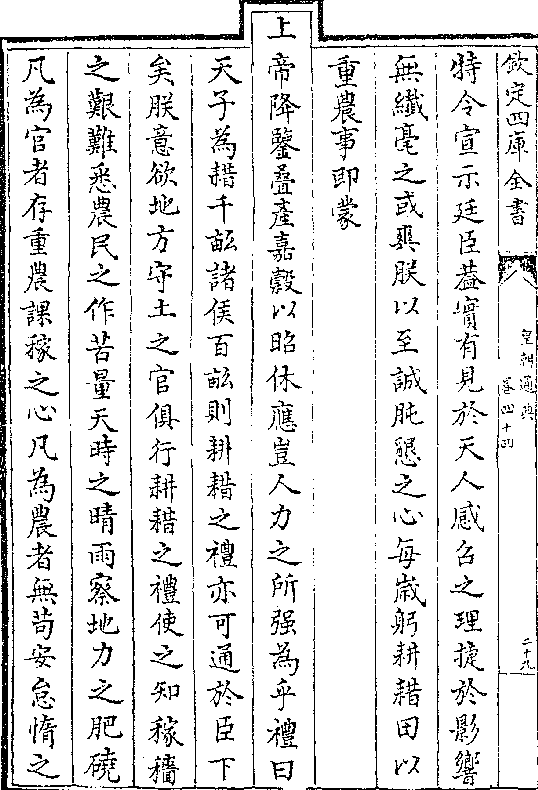 欽定四庫全書
皇朝通典
卷四十四
二十九
特令宣示廷臣葢實有見於天人感召之理捷於影響
無纎毫之或爽朕以至誠肫懇之心每嵗躬耕耤田以
重農事即蒙
上帝降鑒疊產嘉榖以昭休應豈人力之所强為乎禮曰
天子為耤千畝諸侯百畝則耕耤之禮亦可通於臣下
矣朕意欲地方守土之官俱行耕耤之禮使之知稼穡
之艱難悉農民之作苦量天時之晴雨察地力之肥磽
凡為官者存重農課稼之心凡為農者無苟安怠惰之